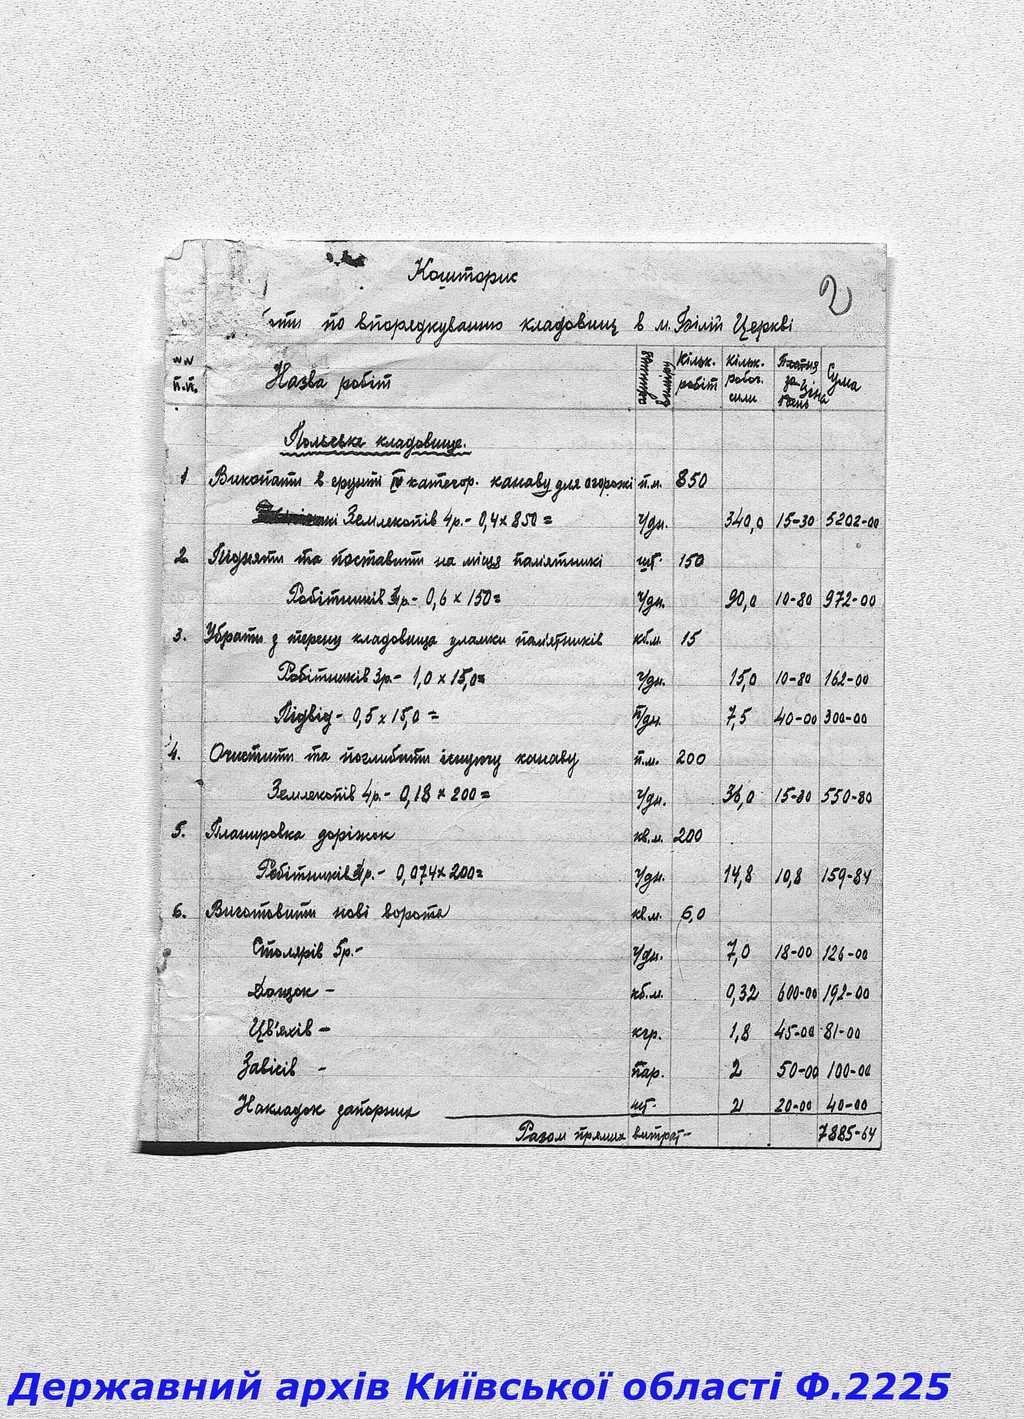 Кошторис
2
по впорядкуванню кладовищ в м. Білій Церкві
№№ п.п. Назва робіт одиниця виміру Кільк. робіт Кільк. робоч. сили Платня за день ціна Сума
Польське кладовище.
1 Викопати в грунті IV категор. канаву для огорожі п.м. 850
Землекопів 4р. - 0,4 х 850 = ч/дн. 340,0 15-30 5202-00
2. Підняти та поставити на місця памятникі шт. 150
Робітників 3р. - 0,6 х 150 = ч/дн. 90,0 10-80 972-00
3. Убрати з терену кладовища уламки пам'ятників кб.м. 15
Робітників 3р. - 1,0 х 15,0 = ч/дн. 15,0 10-80 162-00
Підвід - 0,5 х 15,0 = п/дн. 7,5 40-00 300-00
4. Очистити та поглибити існуючу канаву п.м. 200
Землекопів 4р. - 0,18 х 200 = ч/дн. 36,0 15-30 550-80
5. Планировка доріжок кв.м. 200
Робітників 3р. - 0,074 х 200 = ч/дн. 14,8 10,8 159-84
6. Виготовити нові ворота кв.м. 6,0
Столярів 5р. - ч/дн. 7,0 18-00 126-00
Дощок - кб.м. 0,32 600-00 192-00
Цв'яхів - кгр. 1,8 45-00 81-00
Завісів - пар. 2 50-00 100-00
Накладок запорних шт. 2 20-00 40-00
Разом прямих витрат - 7885-64
Державний архів Київської області Ф.2225